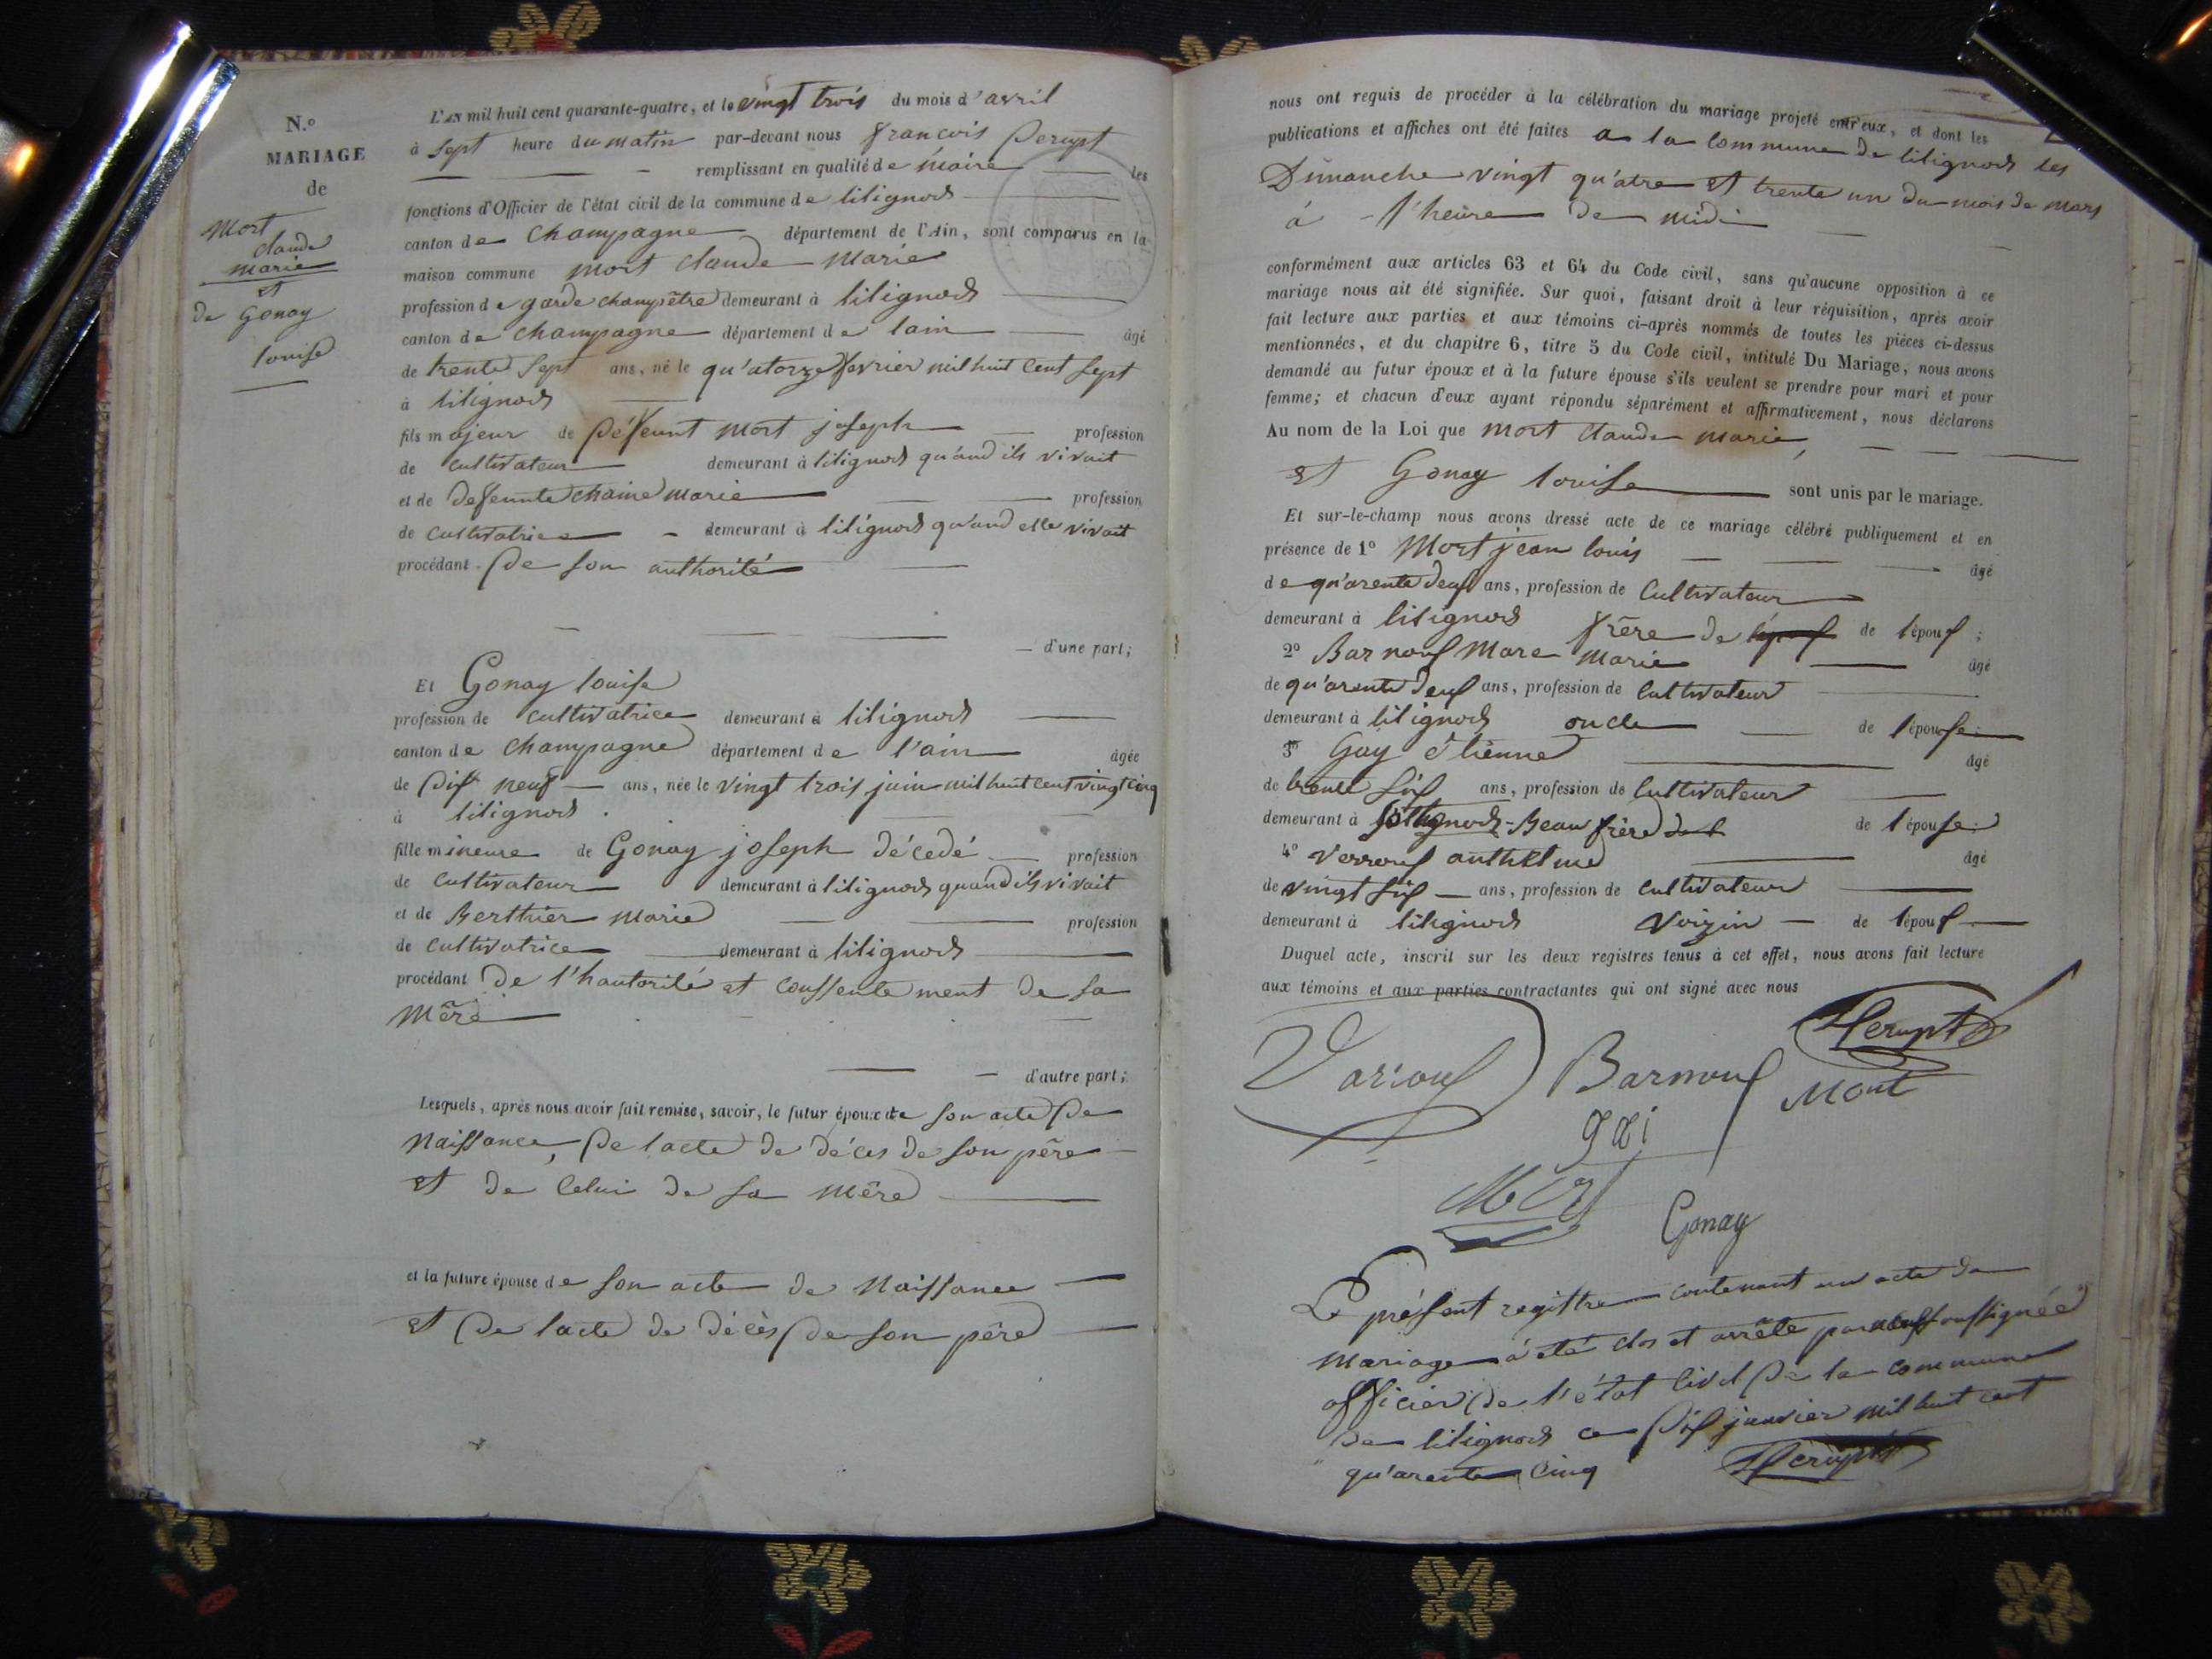 N.o
MARIAGE
de
Mort
claude
marie
et
de Gonay
louise
L'AN mil huit cent quarante-quatre, et le vingt trois du mois d'avril
à sept heure du matin par-devant nous françois Perupt
remplissant en qualité de maire les
fonctions d'Officier de l'état civil de la commune de lilignod
canton de Champagne département de l'Ain, sont comparus en la
maison commune mort claude marie
profession de garde champêtre demeurant à lilignod
canton de champagne département de lain âgé
de trente sept ans, né le qu'atorze fevrier mil huit cent sept
à lilignod
fils majeur de défeunt mort joseph profession
de cultivateur demeurant à lilignod qu'and ils vivait
et de defeunte chaine marie profession
de cultivatrice demeurant à lilignod qu'and elle vivait
procédant de son authorité
d'une part;
Et Gonay louise
profession de cultivatrice demeurant à lilignod
canton de champagne département de l'ain âgée
de dix neuf ans, née le vingt trois juin mil huit cent vingt cinq
à lilignod.
fille mineure de Gonay joseph décedé profession
de cultivateur demeurant à lilignod quand ils vivait
et de Berthier marie profession
de cultivatrice demeurant à lilignod
procédant de l'hautorité et conssentement de sa
mère
d'autre part;
Lesquels, après nous avoir fait remise, savoir, le futur époux de son acte de
naissance, de lacte de décès de son père
et de celui de sa mère
et la future épouse de son acte de naissance
et de lacte de décès de son père
nous ont requis de procéder à la célébration du mariage projeté entr'eux, et dont les
publications et affiches ont été faites a la commune de lilignod les
Dimanche vingt qu'atre et trente un du mois de mars
à l'heure de midi
conformément aux articles 63 et 64 du Code civil, sans qu'aucune opposition à ce
mariage nous ait été signifiée. Sur quoi, faisant droit à leur réquisition, après avoir
fait lecture aux parties et aux témoins ci-après nommés de toutes les pièces ci-dessus
mentionnées, et du chapitre 6, titre 5 du Code civil, intitulé Du Mariage, nous avons
demandé au futur époux et à la future épouse s'ils veulent se prendre pour mari et pour
femme; et chacun d'eux ayant répondu séparément et affirmativement, nous déclarons
Au nom de la Loi que mort claude marie,
et Gonay louise sont unis par le mariage.
Et sur-le-champ nous avons dressé acte de ce mariage célébré publiquement et en
présence de 1o Mort jean louis âgé
de qu'arente deux ans, profession de Cultivateur
demeurant à lilignod frère de lépoux de lépoux;
2o Barnoux Marc Marie âgé
de qu'arente deux ans, profession de Cultivateur
demeurant à lilignod oncle de lépouse;
3o Gay étienne âgé
de trente six ans, profession de Cultivateur
demeurant à lilignod Beau frère de l de lépouse;
4o Verroux anthelme âgé
de vingt six ans, profession de cultivateur
demeurant à lilignod voizin de lépoux
Duquel acte, inscrit sur les deux registres tenus à cet effet, nous avons fait lecture
aux témoins et aux parties contractantes qui ont signé avec nous
Perupt
Varioux Barnoux Mort
gai
Mort
Gonay
Le présent registre contenant un acte de
mariage à été clos et arrête par nous soussignée
officier de l'état civil de la commune
de lilignod ce dix janvier mil huit cent
qu'arente cinq Perupt